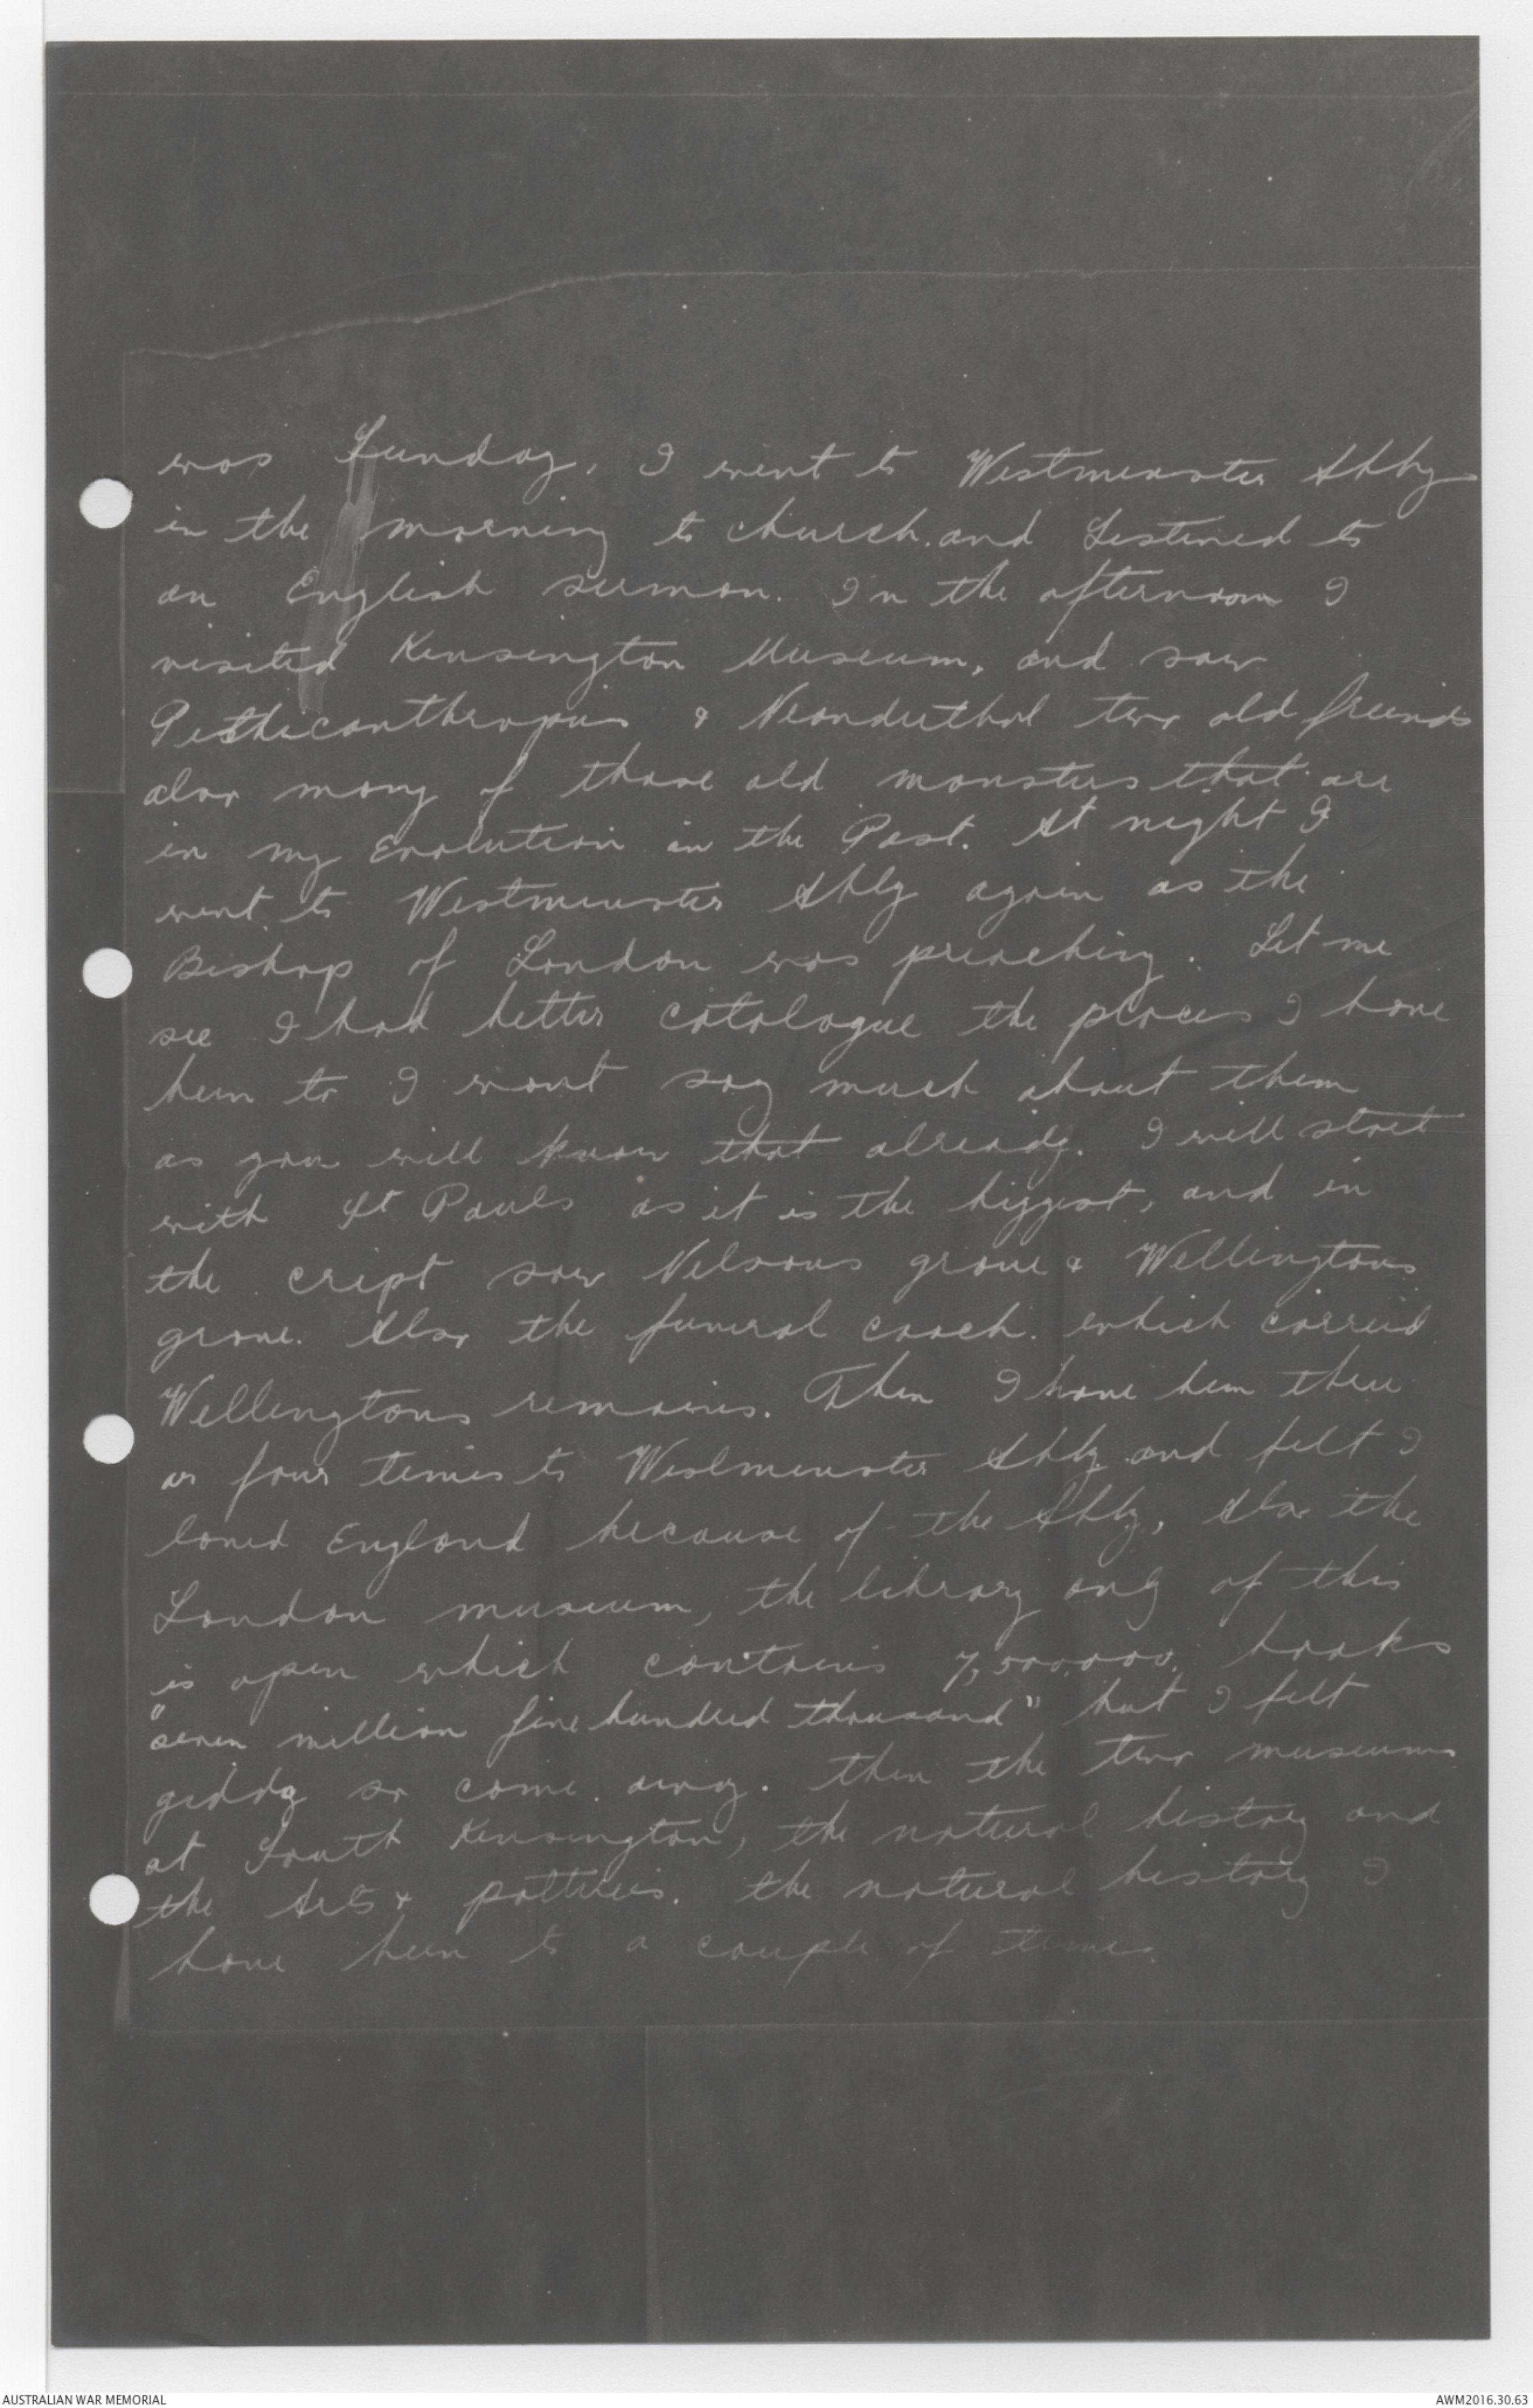 was Sunday, I went to Westminster Abby
in the morning to church. and Listined to
an English sermon. In the afternoon I
visited Kensington Museum, and saw
Pethicanthropus & Neanderthal two old freinds
also many of those old monsters that are
in my Evolution in the Past. At night I
went to Westminster Abby again as the
Bishop of London was preaching. Let me
see I had better catalogue the places I have
been to I wont say much about them
as you will know that already. I will start
with St Pauls as it is the biggest, and in
the cript saw Nelsons grave & Wellingtons
grave. Also the funeral coach. which carried
Wellingtons remains. Then I have been three
or four times to Westminster Abby and felt I
loved England because of the Abby, Also the
London museum, the library ony of this
is open which contains 7,500,000. books
"seven million five hundred thousand" but I felt
giddy so come away. then the two museums
at South Kensington, the natural history and
the Arts & potteries. the natural history I
have been to a couple of times.
AUSTRALIAN WAR MEMORIAL
AWM2016.30.63